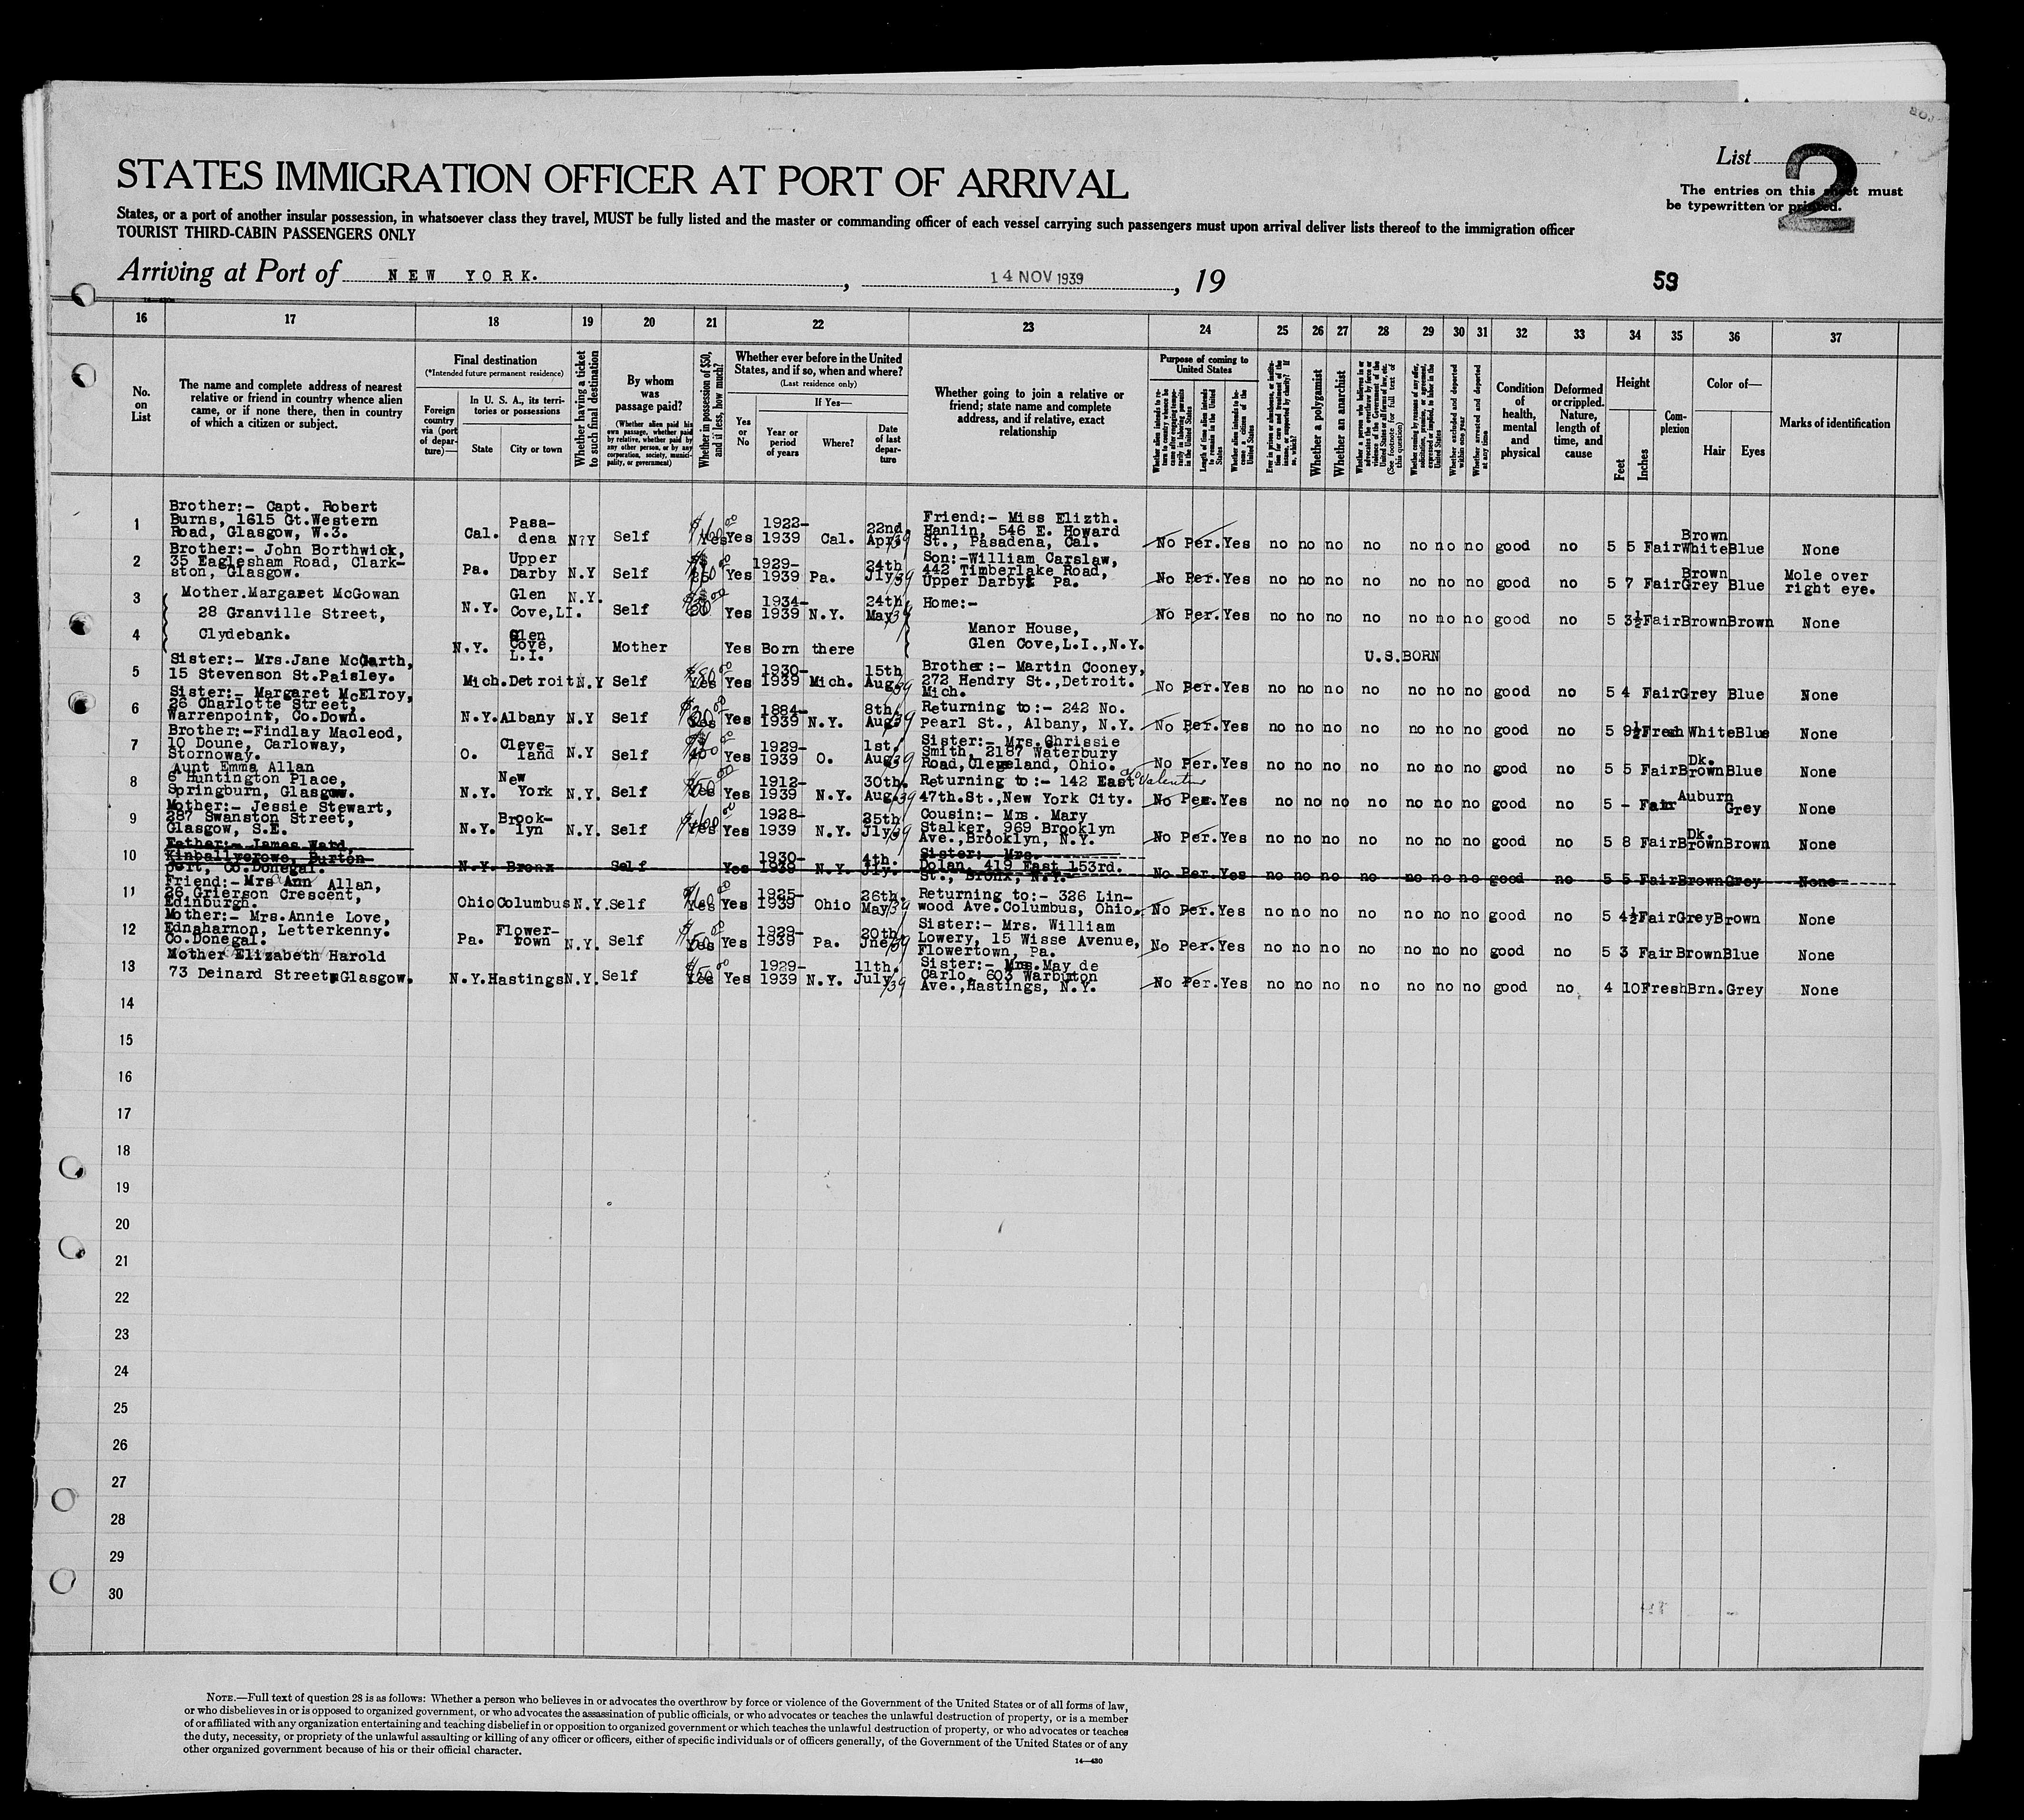 List 2
STATES IMMIGRATION OFFICER AT PORT OF ARRIVAL
The entries on this sheet must
be typewritten or printed.
States, or a port of another insular possession, in whatsoever class they travel, MUST be fully listed and the master or commanding officer of each vessel carrying such passengers must upon arrival deliver lists thereof to the immigration officer
TOURIST THIRD-CABIN PASSENGERS ONLY
Arriving at Port of NEW YORK. , 14 NOV 1939 , 19 59
16 17 18 19 20 21 22 23 24 25 26 27 28 29 30 31 32 33 34 35 36 37
No.
on
List
The name and complete address of nearest
relative or friend in country whence alien
came, or if none there, then in country
of which a citizen or subject.
Final destination
(*Intended future permanent residence)
Foreign
country
via (port
of depar-
ture)—
In U. S. A., its terri-
tories or possessions
State
City or town
Whether having a ticket
to such final destination
By whom
was
passage paid?
(Whether alien paid his
own passage, whether paid
by relative, whether paid by
any other person, or by any
corporation, society, munici-
pality, or government)
Whether in possession of $50,
and if less, how much?
Whether ever before in the United
States, and if so, when and where?
(Last residence only)
Yes
or
No
If Yes—
Year or
period
of years
Where?
Date
of last
depar-
ture
Whether going to join a relative or
friend; state name and complete
address, and if relative, exact
relationship
Purpose of coming to
United States
Whether alien intends to re-
turn to country whence he
came after engaging tempo-
rarily in laboring pursuits
in the United States
Length of time alien intends
to remain in the United
States
Whether alien intends to be-
come a citizen of the
United States
Ever in prison or almshouse, or institu-
tion for care and treatment of the
insane, or supported by charity? If
so, which?
Whether a polygamist
Whether an anarchist
(See footnote for full text of
this question)
Whether excluded and deported
within one year
Whether arrested and deported
at any time
Condition
of
health,
mental
and
physical
Deformed
or crippled.
Nature,
length of
time, and
cause
Height
Feet
Inches
Com-
plexion
Color of—
Hair
Eyes
Marks of identification
1 Brother:- Capt. Robert
Burns, 1615 Gt.Western
Road, Glasgow, W.3.
Cal. Pasa-
dena N?Y Self $100 Yes Yes 1922-
1939 Cal. 22nd
Apr/39 Friend:- Miss Elizth.
Hanlin, 546 E. Howard
St., Pasadena, Cal.
No Per. Yes no no no no no no no good no 5 5 Fair Brown
White Blue None
2 Brother:- John Borthwick,
35 Eaglesham Road, Clark-
ston, Glasgow.
Pa. Upper
Darby N.Y Self Yes 1929-
1939 Pa. 24th
Jly/39 Son:-William Carslaw,
442 Timberlake Road,
Upper Darby, Pa.
No Per. Yes no no no no no no no good no 5 7 Fair Brown
Grey Blue Mole over
right eye.
3 Mother.Margaret McGowan
28 Granville Street,
N.Y. Glen
Cove,LI. N.Y. Self Yes 1934-
1939 N.Y. 24th
May/39 Home:-
No Per. Yes no no no no no no no good no 5 3½ Fair Brown Brown None
4 Clydebank.
N.Y. Glen
Cove,
L.I. Mother Yes Born there Manor House,
Glen Cove,L.I.,N.Y.
U.S.BORN
5 Sister:- Mrs.Jane McGarth,
15 Stevenson St.Paisley.
Mich. Detroit N.Y Self $50 Yes Yes 1930-
1939 Mich. 15th
Aug/39 Brother:- Martin Cooney,
272 Hendry St.,Detroit.
Mich.
No Per. Yes no no no no no no no good no 5 4 Fair Grey Blue None
6 Sister:- Margaret McElroy,
26 Charlotte Street,
Warrenpoint, Co.Down.
N.Y. Albany N.Y Self Yes Yes 1884-
1939 N.Y. 8th
Aug/39 Returning to:- 242 No.
Pearl St., Albany, N.Y.
No Per. Yes no no no no no no no good no 5 9½ Fresh White Blue None
7 Brother:-Findlay Macleod,
10 Doune, Carloway,
Stornoway.
O. Cleve-
land N.Y Self Yes 1929-
1939 O. 1st.
Aug/39 Sister:- Mrs.Chrissie
Smith, 2187 Waterbury
Road, Cleveland, Ohio.
No Per. Yes no no no no no no no good no 5 5 Fair Dk.
Brown Blue None
8 Aunt Emma Allan
6 Huntington Place,
Springburn, Glasgow.
N.Y. New
York N.Y. Self Yes Yes 1912-
1939 N.Y. 30th.
Aug/39 Returning to:- 142 East
% Valentine
47th.St.,New York City.
No Per. Yes no no no no no no no good no 5 - Fair Auburn
Grey None
9 Mother:- Jessie Stewart,
287 Swanston Street,
Glasgow, S.E.
N.Y. Brook-
lyn N.Y. Self $100 Yes Yes 1928-
1939 N.Y. 25th
Jly/39 Cousin:- Mrs. Mary
Stalker, 969 Brooklyn
Ave.,Brooklyn, N.Y.
No Per. Yes no no no no no no no good no 5 8 Fair Dk.
Brown Brown None
10 Father:- James Ward,
Kinballycrowe, Burton-
port, Co.Donegal.
N.Y. Bronx Self Yes 1930-
1939 N.Y. 4th.
Jly. Sister:- Mrs.
Dolan, 419 East 153rd.
St., Bronx, N.Y.
No Per. Yes no no no no no no no good no 5 5 Fair Brown Grey None
11 Friend:- Mrs Ann Allan,
26 Grierson Crescent,
Edinburgh.
Ohio Columbus N.Y. Self Yes Yes 1925-
1939 Ohio 26th
May/39 Returning to:- 326 Lin-
wood Ave.Columbus, Ohio.
No Per. Yes no no no no no no no good no 5 4½ Fair Grey Brown None
12 Mother:- Mrs.Annie Love,
Ednaharnon, Letterkenny.
Co.Donegal.
Pa. Flower-
town N.Y. Self $50 Yes Yes 1929-
1939 Pa. 20th
Jne/39 Sister:- Mrs. William
Lowery, 15 Wisse Avenue,
Flowertown, Pa.
No Per. Yes no no no no no no no good no 5 3 Fair Brown Blue None
13 Mother Elizabeth Harold
73 Deinard Street, Glasgow.
N.Y. Hastings N.Y. Self $50 Yes Yes 1929-
1939 N.Y. 11th.
July/39 Sister:- Mrs.May de
Carlo, 603 Warburton
Ave.,Hastings, N.Y.
No Per. Yes no no no no no no no good no 4 10 Fresh Brn. Grey None
14
15
16
17
18
19
20
21
22
23
24
25
26
27
28
29
30
NOTE.—Full text of question 28 is as follows: Whether a person who believes in or advocates the overthrow by force or violence of the Government of the United States or of all forms of law,
or who disbelieves in or is opposed to organized government, or who advocates the assassination of public officials, or who advocates or teaches the unlawful destruction of property, or is a member
of or affiliated with any organization entertaining and teaching disbelief in or opposition to organized government or which teaches the unlawful destruction of property, or who advocates or teaches
the duty, necessity, or propriety of the unlawful assaulting or killing of any officer or officers, either of specific individuals or of officers generally, of the Government of the United States or of any
other organized government because of his or their official character.
14—430